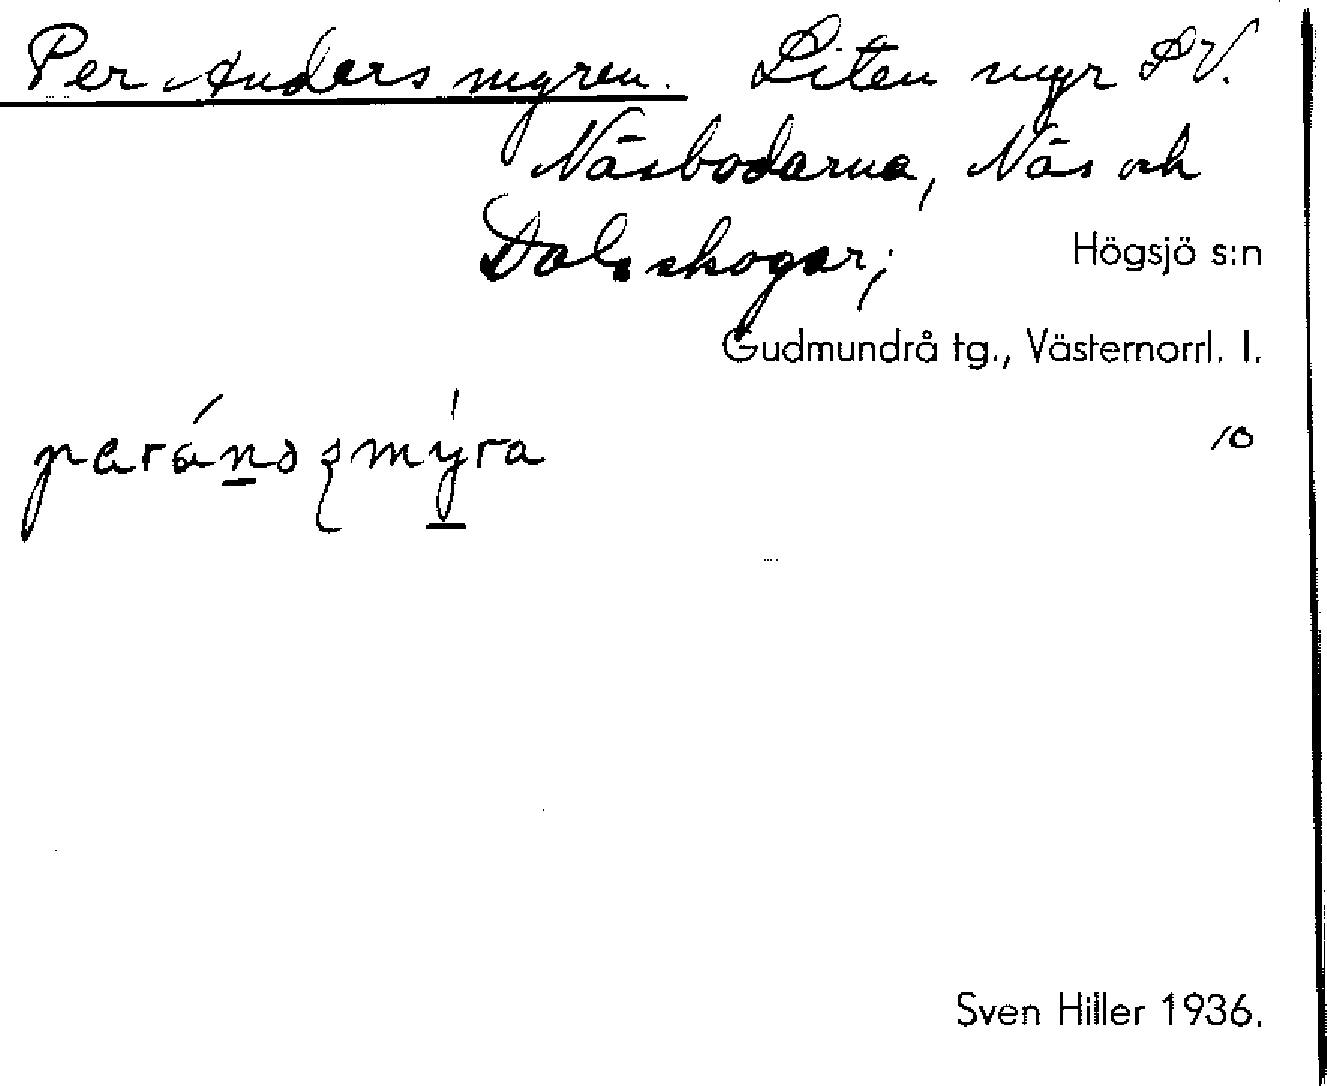 Per Anders myren. Liten myr SV.
Näsbodarna, Näs och
Dals skogar;
Högsjö s:n
Gudmundrå tg., Västernorrl. l.
10
Sven Hiller 1936.